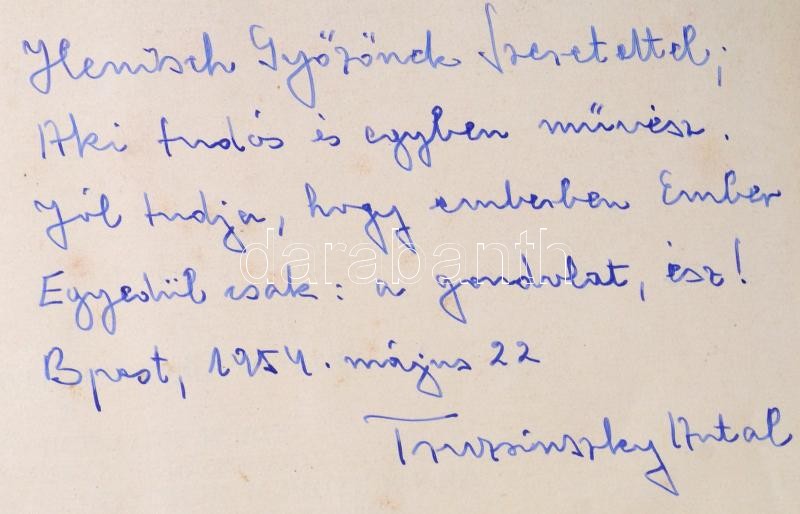 Henisch Győzőnek szeretettel;
Aki tudós és egyben művész.
Jól tudja, hogy emberben Ember
darabanth
Egyedül csak: a gondolat, ész!
Bpest, 1954. május 22
Antal